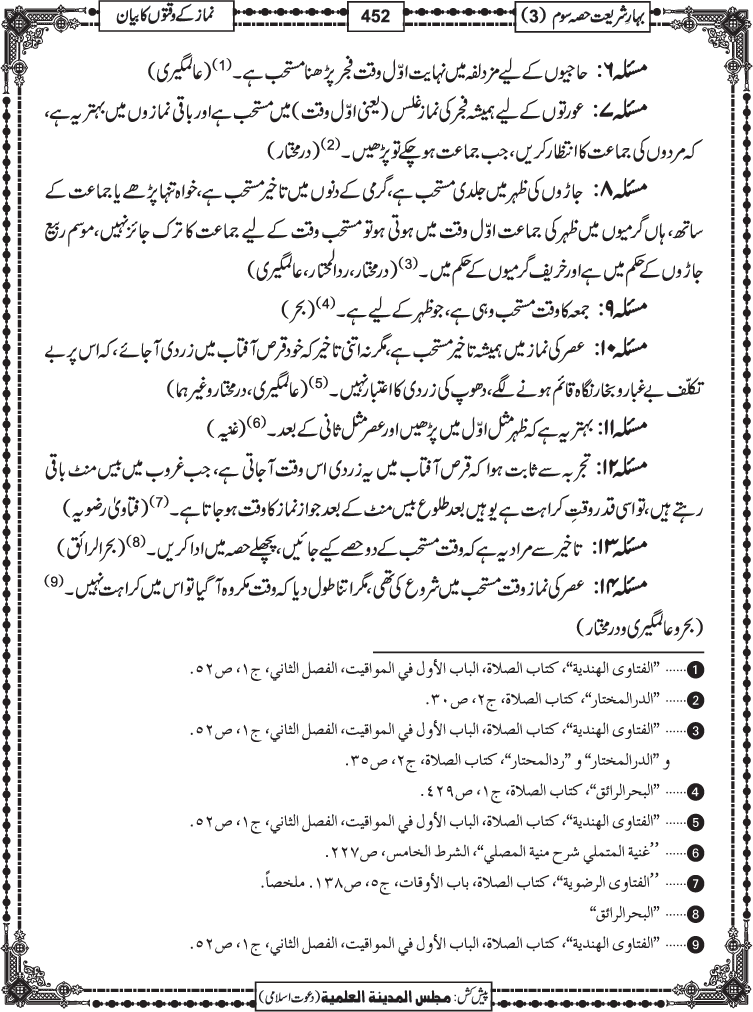 بہارِ شریعت حصہ سوم (3)
452
نماز کے وقتوں کا بیان
مسئلہ ۶: حاجیوں کے لیے مزدلفہ میں نہایت اوّل وقت فجر پڑھنا مستحب ہے۔(1) (عالمگیری)
مسئلہ ۷: عورتوں کے لیے ہمیشہ فجر کی نماز غلس (یعنی اوّل وقت) میں مستحب ہے اور باقی نمازوں میں بہتر یہ ہے،
کہ مردوں کی جماعت کا انتظار کریں، جب جماعت ہو چکے تو پڑھیں۔(2) (درمختار)
مسئلہ ۸: جاڑوں کی ظہر میں جلدی مستحب ہے، گرمی کے دنوں میں تاخیر مستحب ہے، خواہ تنہا پڑھے یا جماعت کے
ساتھ، ہاں گرمیوں میں ظہر کی جماعت اوّل وقت میں ہوتی ہو تو مستحب وقت کے لیے جماعت کا ترک جائز نہیں، موسم ربیع
جاڑوں کے حکم میں ہے اور خریف گرمیوں کے حکم میں۔(3) (درمختار، ردالمحتار، عالمگیری)
مسئلہ ۹: جمعہ کا وقت مستحب وہی ہے، جو ظہر کے لیے ہے۔(4) (بحر)
مسئلہ ۱۰: عصر کی نماز میں ہمیشہ تاخیر مستحب ہے، مگر نہ اتنی تاخیر کہ خود قرص آفتاب میں زردی آجائے، کہ اس پر بے
تکلّف بے غبار و بخار نگاہ قائم ہونے لگے، دھوپ کی زردی کا اعتبار نہیں۔(5) (عالمگیری، درمختار وغیرہما)
مسئلہ ۱۱: بہتر یہ ہے کہ ظہر مثل اوّل میں پڑھیں اور عصر مثل ثانی کے بعد۔(6) (غنیہ)
مسئلہ ۱۲: تجربہ سے ثابت ہوا کہ قرص آفتاب میں یہ زردی اس وقت آجاتی ہے، جب غروب میں بیس منٹ باقی
رہتے ہیں، تو اسی قدر وقتِ کراہت ہے یوہیں بعد طلوع بیس منٹ کے بعد جوازِ نماز کا وقت ہو جاتا ہے۔(7) (فتاویٰ رضویہ)
مسئلہ ۱۳: تاخیر سے مراد یہ ہے کہ وقت مستحب کے دو حصے کیے جائیں، پچھلے حصہ میں ادا کریں۔(8) (بحرالرائق)
مسئلہ ۱۴: عصر کی نماز وقت مستحب میں شروع کی تھی، مگر اتنا طول دیا کہ وقت مکروہ آگیا تو اس میں کراہت نہیں۔(9)
(بحر و عالمگیری و درمختار)
1 ...... "الفتاوى الهندية"، كتاب الصلاة، الباب الأول في المواقيت، الفصل الثاني، ج۱، ص۵۲.
2 ...... "الدرالمختار"، كتاب الصلاة، ج۲، ص۳۰.
3 ...... "الفتاوى الهندية"، كتاب الصلاة، الباب الأول في المواقيت، الفصل الثاني، ج۱، ص۵۲.
و "الدرالمختار" و "ردالمحتار"، كتاب الصلاة، ج۲، ص۳۵.
4 ...... "البحرالرائق"، كتاب الصلاة، ج۱، ص۴۲۹.
5 ...... "الفتاوى الهندية"، كتاب الصلاة، الباب الأول في المواقيت، الفصل الثاني، ج۱، ص۵۲.
6 ...... "غنية المتملي شرح منية المصلي"، الشرط الخامس، ص۲۲۷.
7 ...... "الفتاوى الرضوية"، كتاب الصلاة، باب الأوقات، ج۵، ص۱۳۸. ملخصاً.
8 ...... "البحرالرائق"
9 ...... "الفتاوى الهندية"، كتاب الصلاة، الباب الأول في المواقيت، الفصل الثاني، ج۱، ص۵۲.
پیش کش: مجلس المدينة العلمية (دعوت اسلامی)